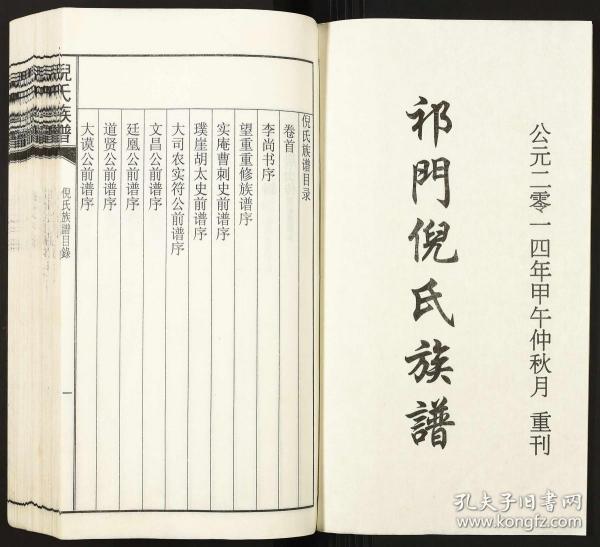 公元二零一四年甲午仲秋月 重刊
祁門倪氏族譜
倪氏族谱目录
卷首
李尚书序
望重重修族谱序
实庵曹刺史前谱序
璞崖胡太史前谱序
大司农实符公前谱序
文昌公前谱序
廷凰公前谱序
道贤公前谱序
大谟公前谱序
倪氏族譜
倪氏族譜目錄
一
孔夫子旧书网
www.kongfz.com